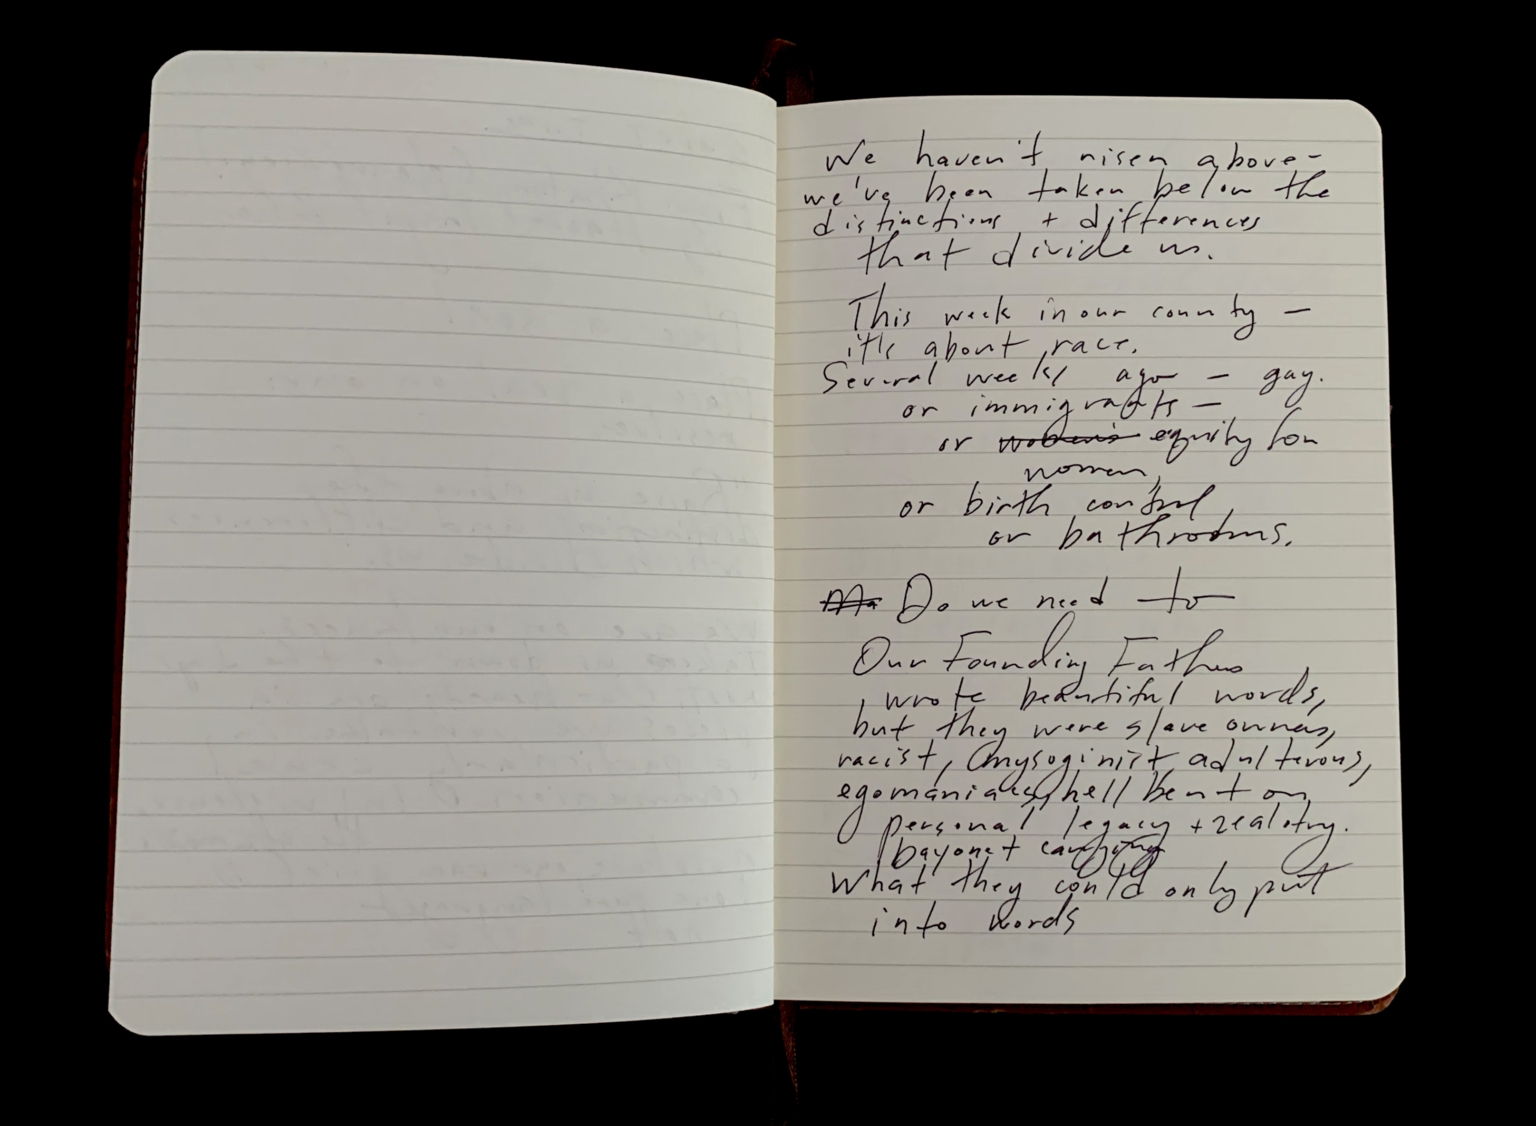 We haven't risen above-
we've been taken below the
distinctions + differences
that divide us.
This week in our county —
it's about race.
Several weeks ago — gay.
or immigrants —
or women's equity for
women,
or birth control
or bathrooms.
Do we need to
Our Founding Fathers
wrote beautiful words,
but they were slave owners,
racist, mysoginist adulterous,
egomaniacs, hell bent on
personal legacy + zealotry.
bayonet carrying
What they could only put
into words